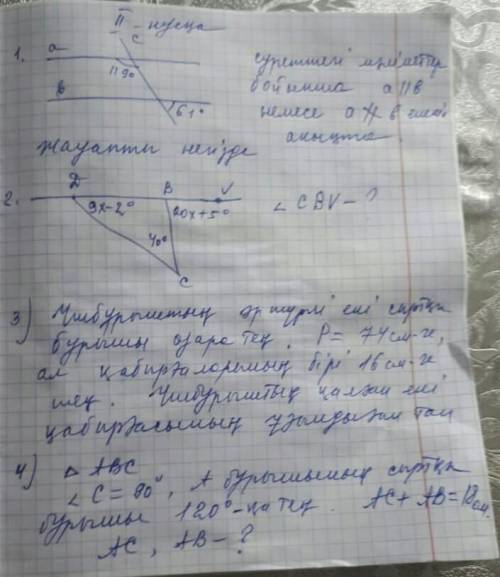 II - нұсқа
1.
a
c
119°
в
61°
суреттегі мәліметтер
бойынша a || в
немесе a ∦ в екенін
анықта.
Жауапты негізде
2.
D
B
V
9x-2°
20x+5°
40°
C
∠ CBV - ?
3) Үшбұрыштың әртүрлі екі сыртқы
бұрышы өзара тең. P = 74 см-ге,
ал қабырғаларының бірі 16 см-ге
тең. Үшбұрыштың қалған екі
қабырғасының ұзындығын тап
4) △ ABC
∠ C = 90°, A бұрышының сыртқы
бұрышы 120°-қа тең. AC + AB = 18 см.
AC, AB - ?